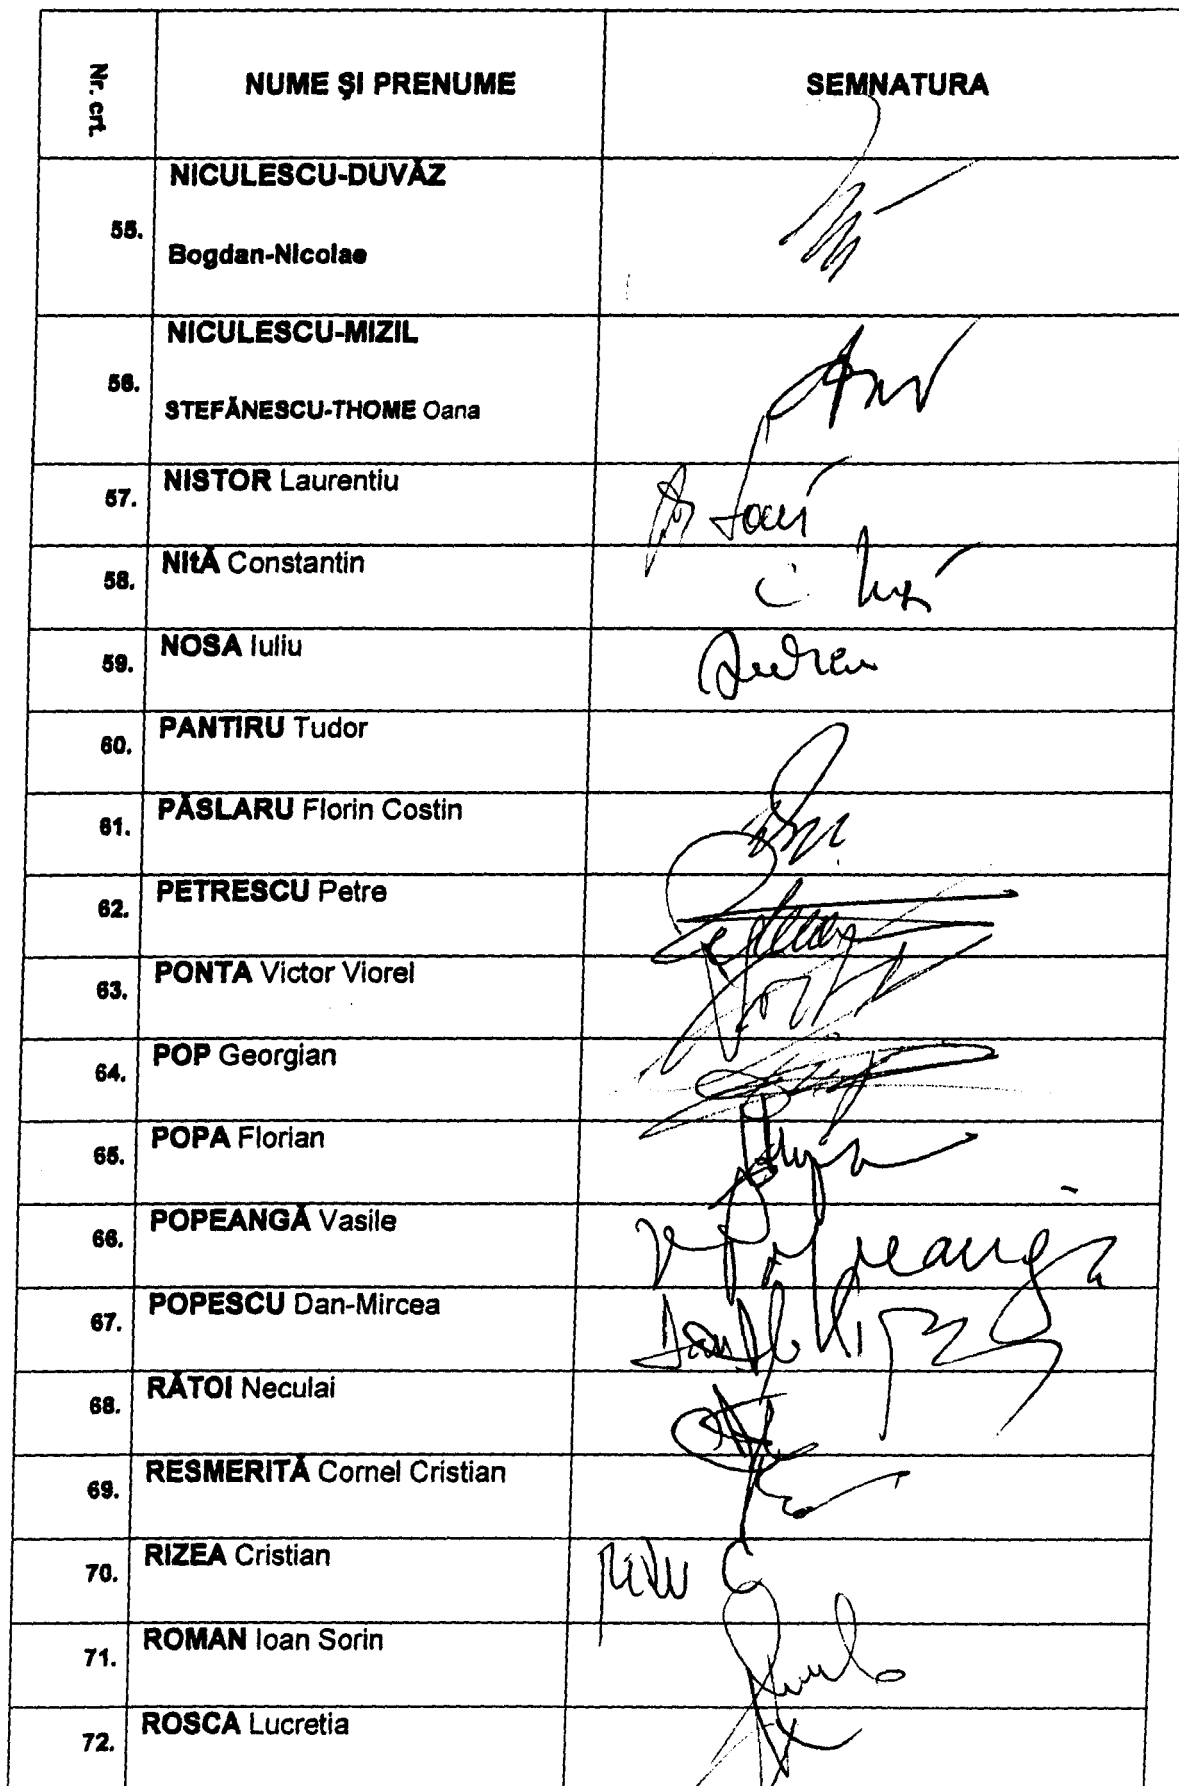 Nr. crt. NUME ȘI PRENUME SEMNATURA
55. NICULESCU-DUVĂZ
Bogdan-Nicolae
56. NICULESCU-MIZIL
STEFĂNESCU-THOME Oana
57. NISTOR Laurentiu
58. NItĂ Constantin
59. NOSA Iuliu
60. PANTIRU Tudor
61. PĂSLARU Florin Costin
62. PETRESCU Petre
63. PONTA Victor Viorel
64. POP Georgian
65. POPA Florian
66. POPEANGĂ Vasile
67. POPESCU Dan-Mircea
68. RĂTOI Neculai
69. RESMERITĂ Cornel Cristian
70. RIZEA Cristian
71. ROMAN Ioan Sorin
72. ROSCA Lucretia